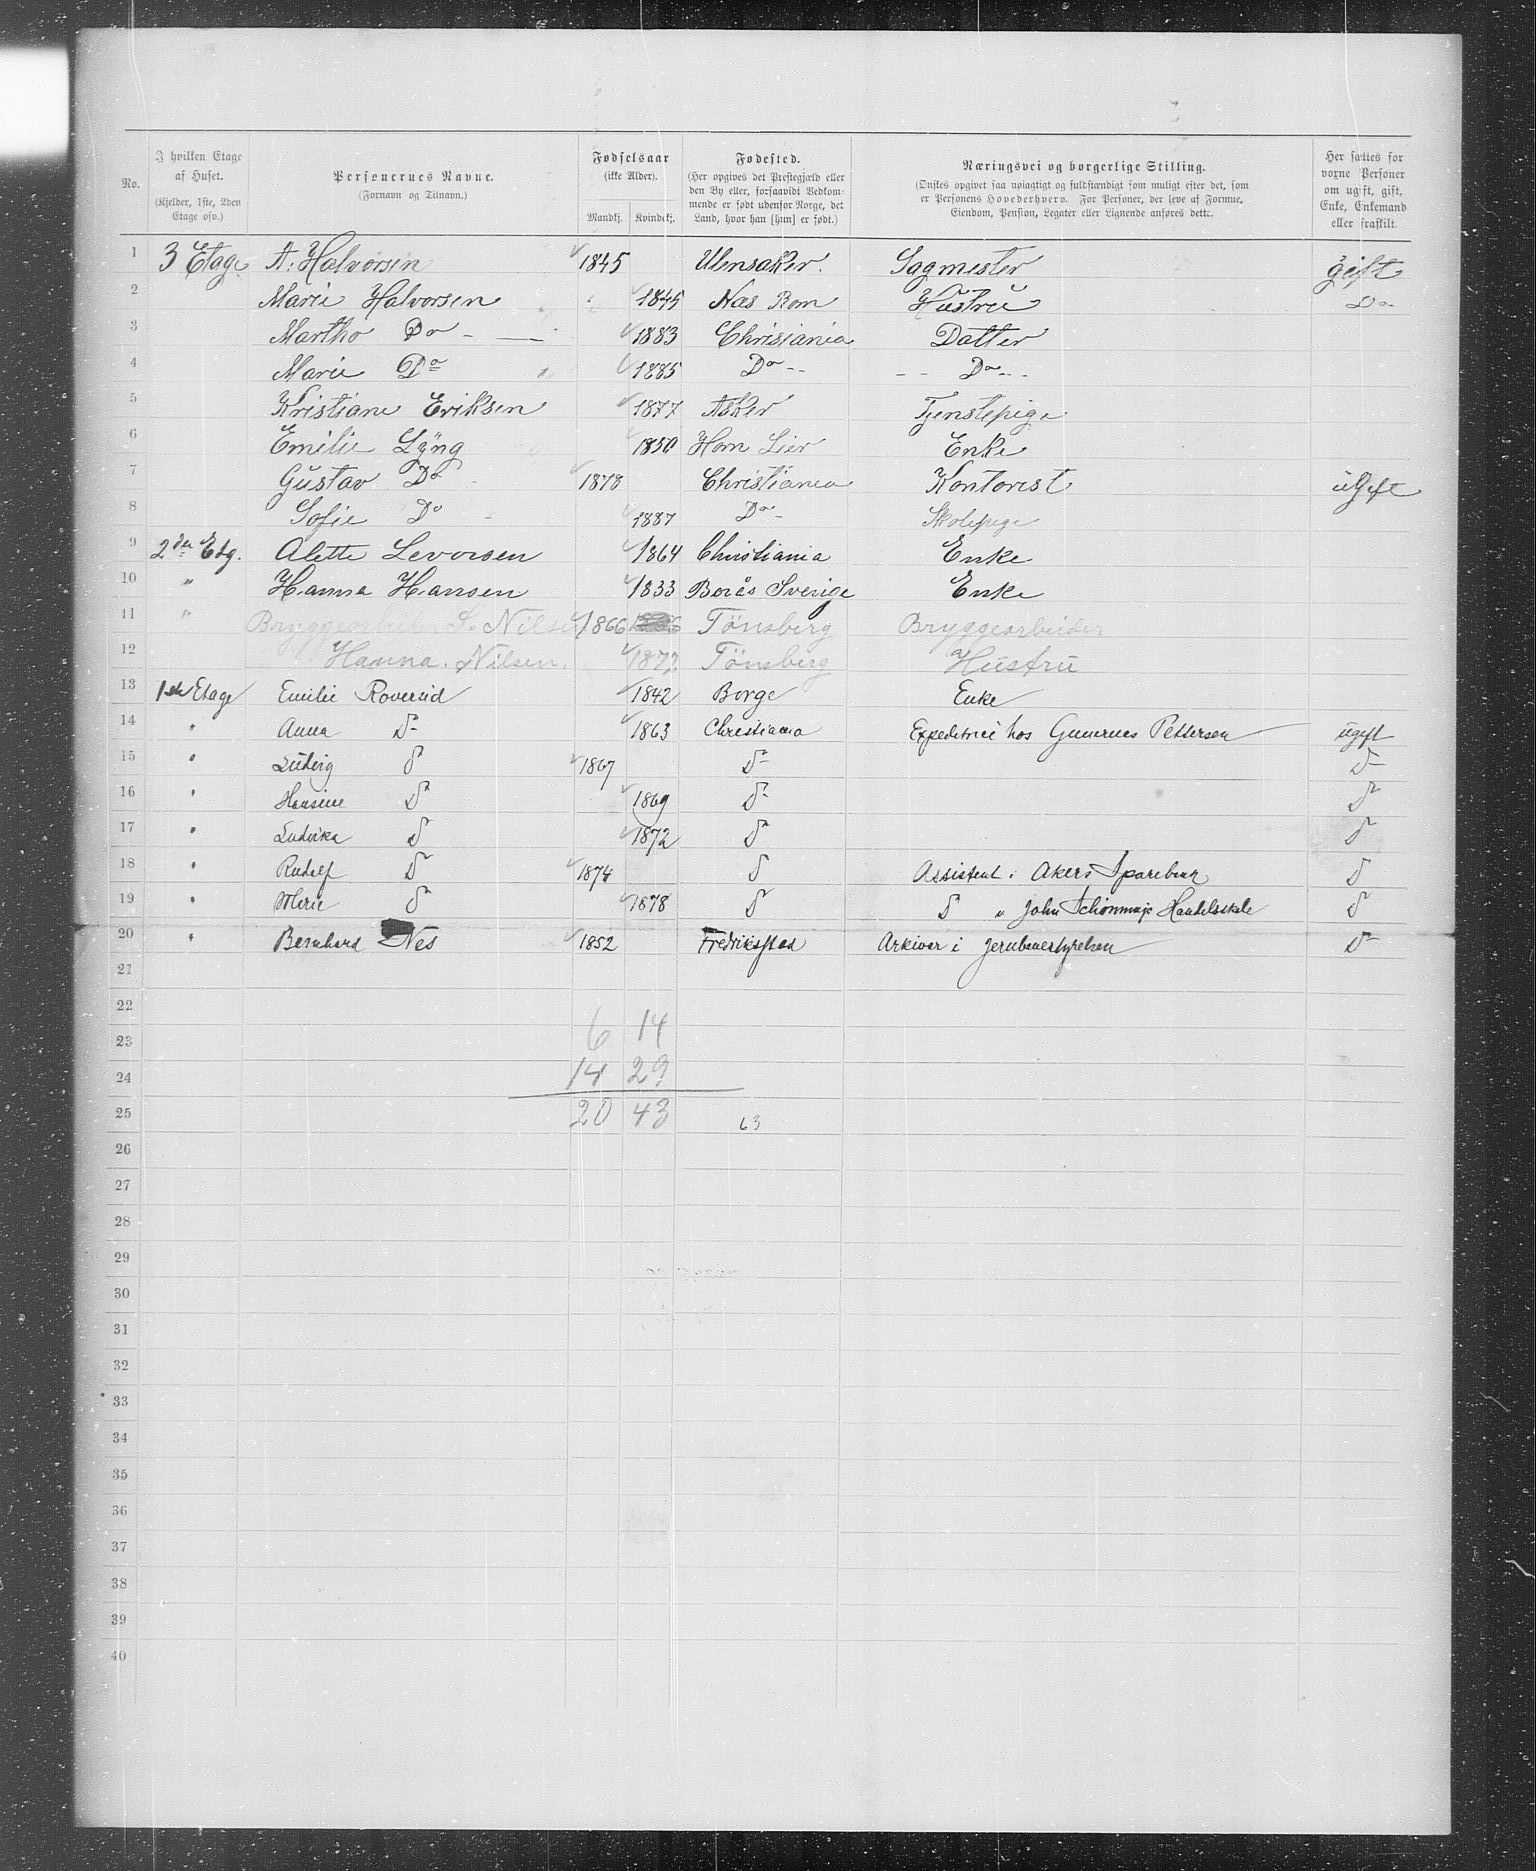 No.	I hvilken Etage af Huset. (Kjelder, 1ste, 2den Etage osv.)	Personernes Navne. (Fornavn og Tilnavn.)	Fødselsaar (ikke Alder). Mandkj. Kvindekj.	Fødested. (Her opgives det Prestegjæld eller den By eller, forsaavidt Vedkommende er født udenfor Norge, det Land, hvor han [hun] er født.)	Næringsvei og borgerlige Stilling. (Ønskes opgivet saa nøiagtigt og fuldstændigt som muligt efter det, som er Personens Hovederhverv. For Personer, der leve af Formue, Eiendom, Pension, Legater eller Lignende anføres dette.)	Her sættes for voxne Personer om ugift, gift, Enke, Enkemand eller fraskilt.
1	3 Etage	A. Halvorsen	1845	Ulensaker.	Sagmester	gift
2	Marie Halvorsen	1845	Næs Rom	Hustru	Do
3	Martha Do	1883	Christiania	Datter
4	Marie Do	1885	Do	Do
5	Kristiane Eriksen	1877	Asker	Tjenstepige
6	Emilie Lyng	1850	Lier	Enke
7	Gustav Do	1878	Christiania	Kontorist	ugift
8	Sofie Do	1887	Do	Skolepige
9	2den Etg.	Alette Levorsen	1864	Christiania	Enke
10	"	Hanna Hansen	1833	Borås Sverige	Enke
11	"	Bryggearbeider S. Nilsen	1866	Tönsberg	Bryggearbeider
12	Hanna Nilsen.	1872	Tönsberg	Hustru
13	1ste Etage	Emilie Roverud	1842	Borge	Enke
14	"	Anna Do	1863	Christiania	Expeditrice hos Gunerius Pettersen	ugift
15	"	Ludvig Do	1867	Do	Do
16	"	Hansine Do	1869	Do	Do
17	"	Ludvika Do	1872	Do	Do
18	"	Rudolf Do	1874	Do	Assistent i Akers Sparebank	Do
19	"	Marie Do	1878	Do	Do " John Schönnings Handelsskole	Do
20	"	Bernhard Nes	1852	Fredriksstad	Arkivar i Jernbanestyrelsen	Do
21
22
23	6 14
24	14 29
25	20 43	63
26
27
28
29
30
31
32
33
34
35
36
37
38
39
40